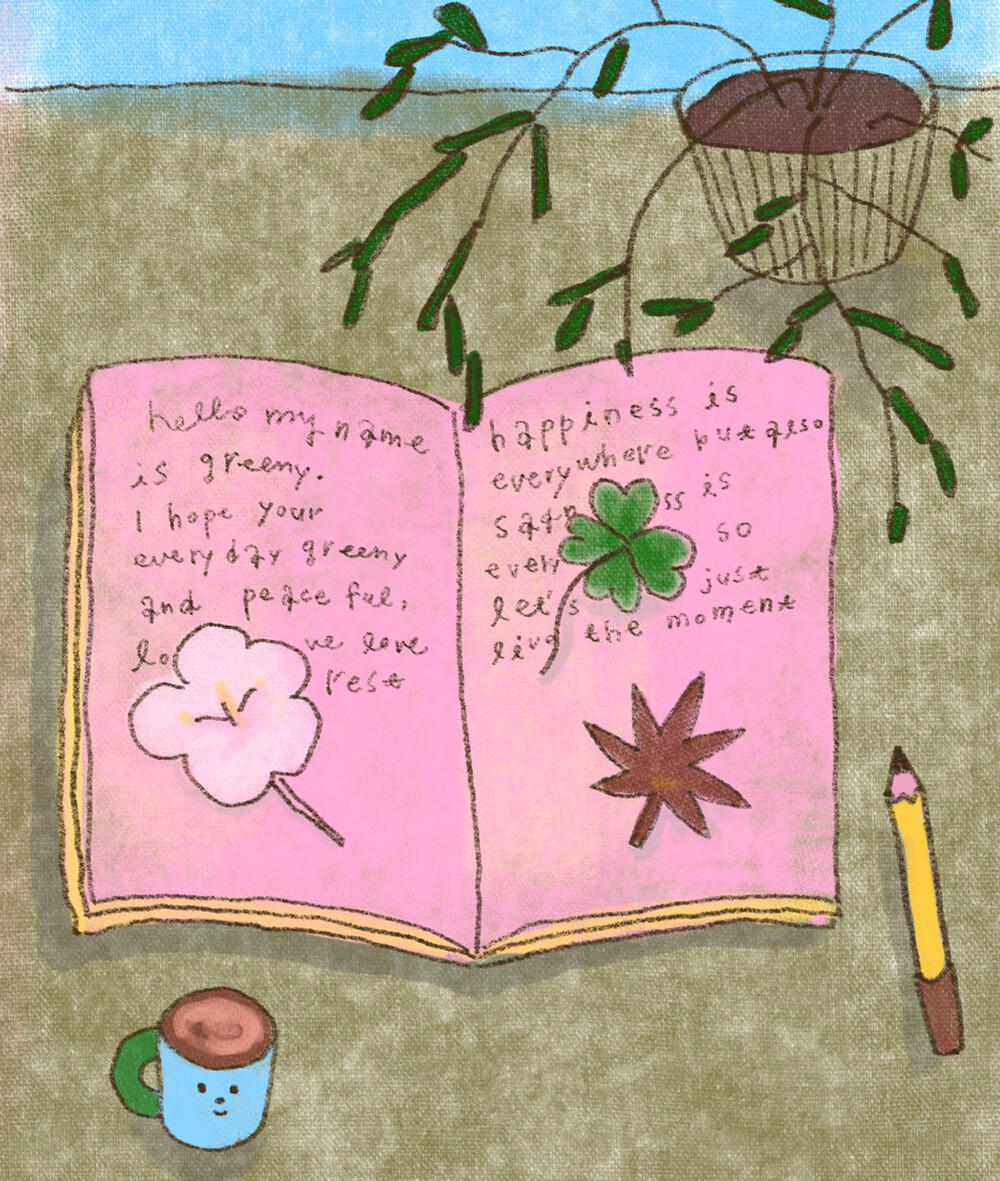 hello my name
is greeny.
I hope your
everyday greeny
and peaceful,
lo ve love
rest
happiness is
everywhere but also
sadn ss is
every so
let's just
live the moment